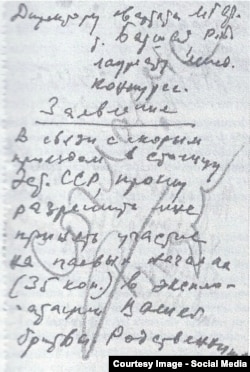 Директору
т.
лауреату
конкурса.
Заявление
В связи с скорым
приездом в столицу
ССР, прошу
разрешить мне
принять участие
на паевых началах
(35 коп.) в эксплу-
атации Вашей
бритвы. Родственник
Courtesy Image - Social Media